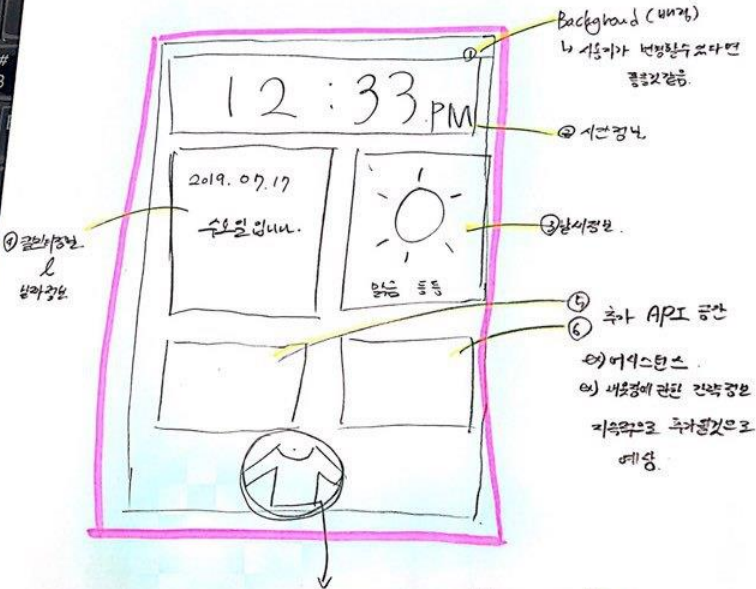 ① Backghoud (배경)
↳ 사용자가 변경할수 있다면
좋을것같음.
12 : 33 PM
② 시간정보
2019. 07. 17
수요일 입니다.
③ 날씨정보.
맑음 등등
④
&
날짜정보
⑤
⑥ 추가 API 공간
ex) 어시스턴스.
ex) 새옷장에 관한 간략정보
지속적으로 추가될것으로
예상.